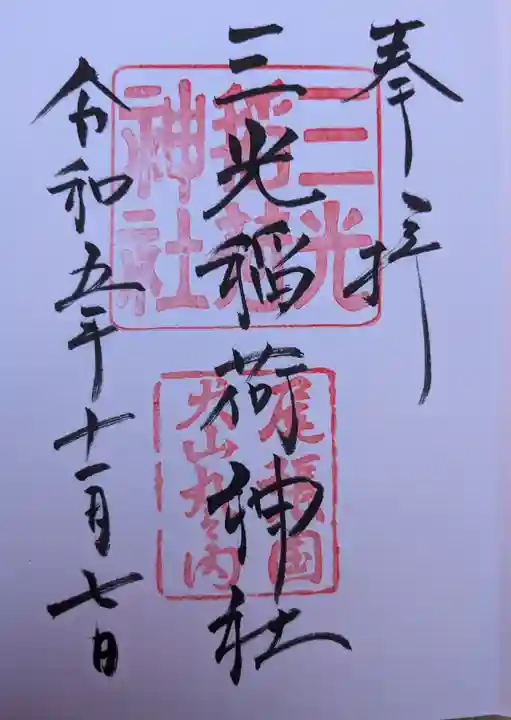 奉拝
三光稲荷神社
令和五年十一月七日
三光
稲荷
神社
尾張国
犬山丸之内